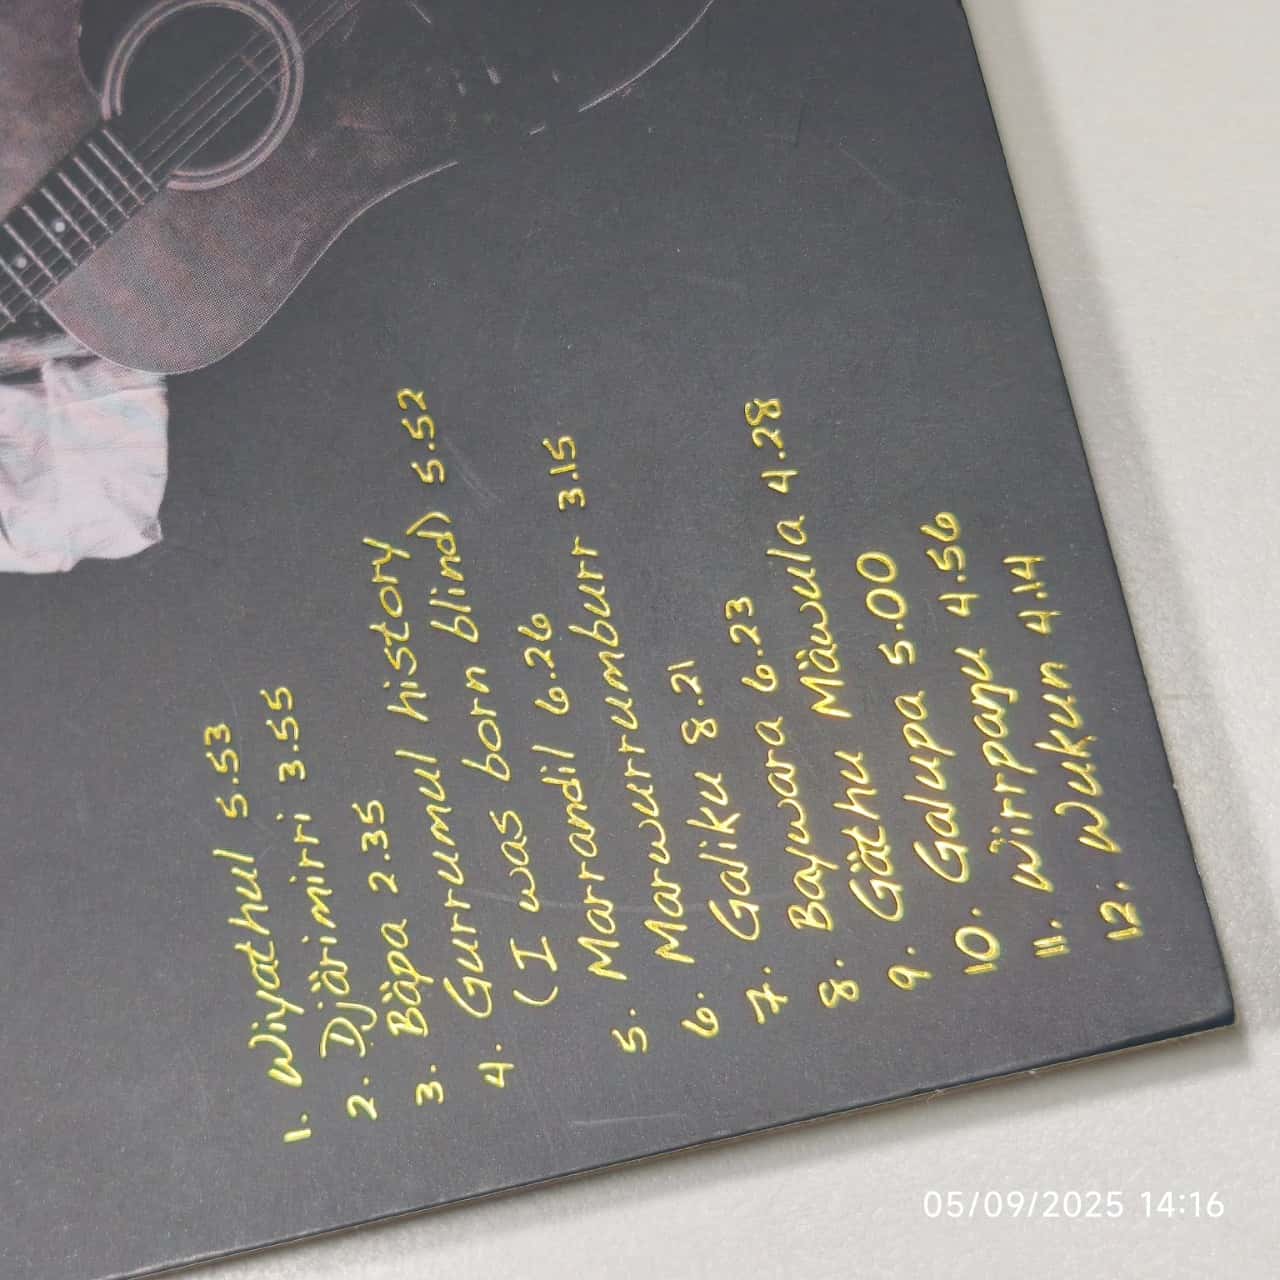 1. Wiyathul 5.53
2. Djärimirri 3.55
3. Bäpa 2.35
4. Gurrumul history
(I was born blind) 5.52
5. Marrandil 6.26
6. Marwurrumburr 3.15
7. Galiku 8.21
8. Baywara 6.23
9. Gäthu Mäwula 4.28
10. Galupa 5.00
11. Wirrpaŋu 4.56
12. Wukun 4.14
05/09/2025 14:16